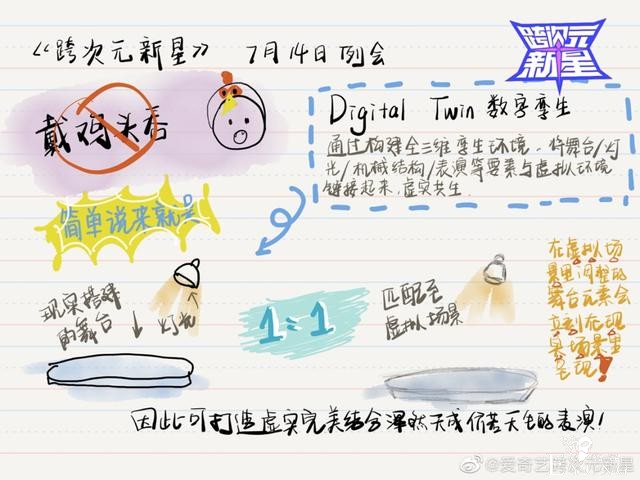 《跨次元新星》 7月14日例会
跨次元
新星
戴鸡头看
Digital Twin 数字孪生
通过构建全三维孪生环境，将舞台/灯
光/机械结构/表演等要素与虚拟环境
链接起来，虚实共生.
简单说来就是
现实搭建
的舞台
灯光
1:1
匹配至
虚拟场景
在虚拟场
景里调整的
舞台元素会
立刻在现
实场景里
呈现!
因此可打造虚实完美结合浑然天成仿若天生的表演!
@爱奇艺跨次元新星